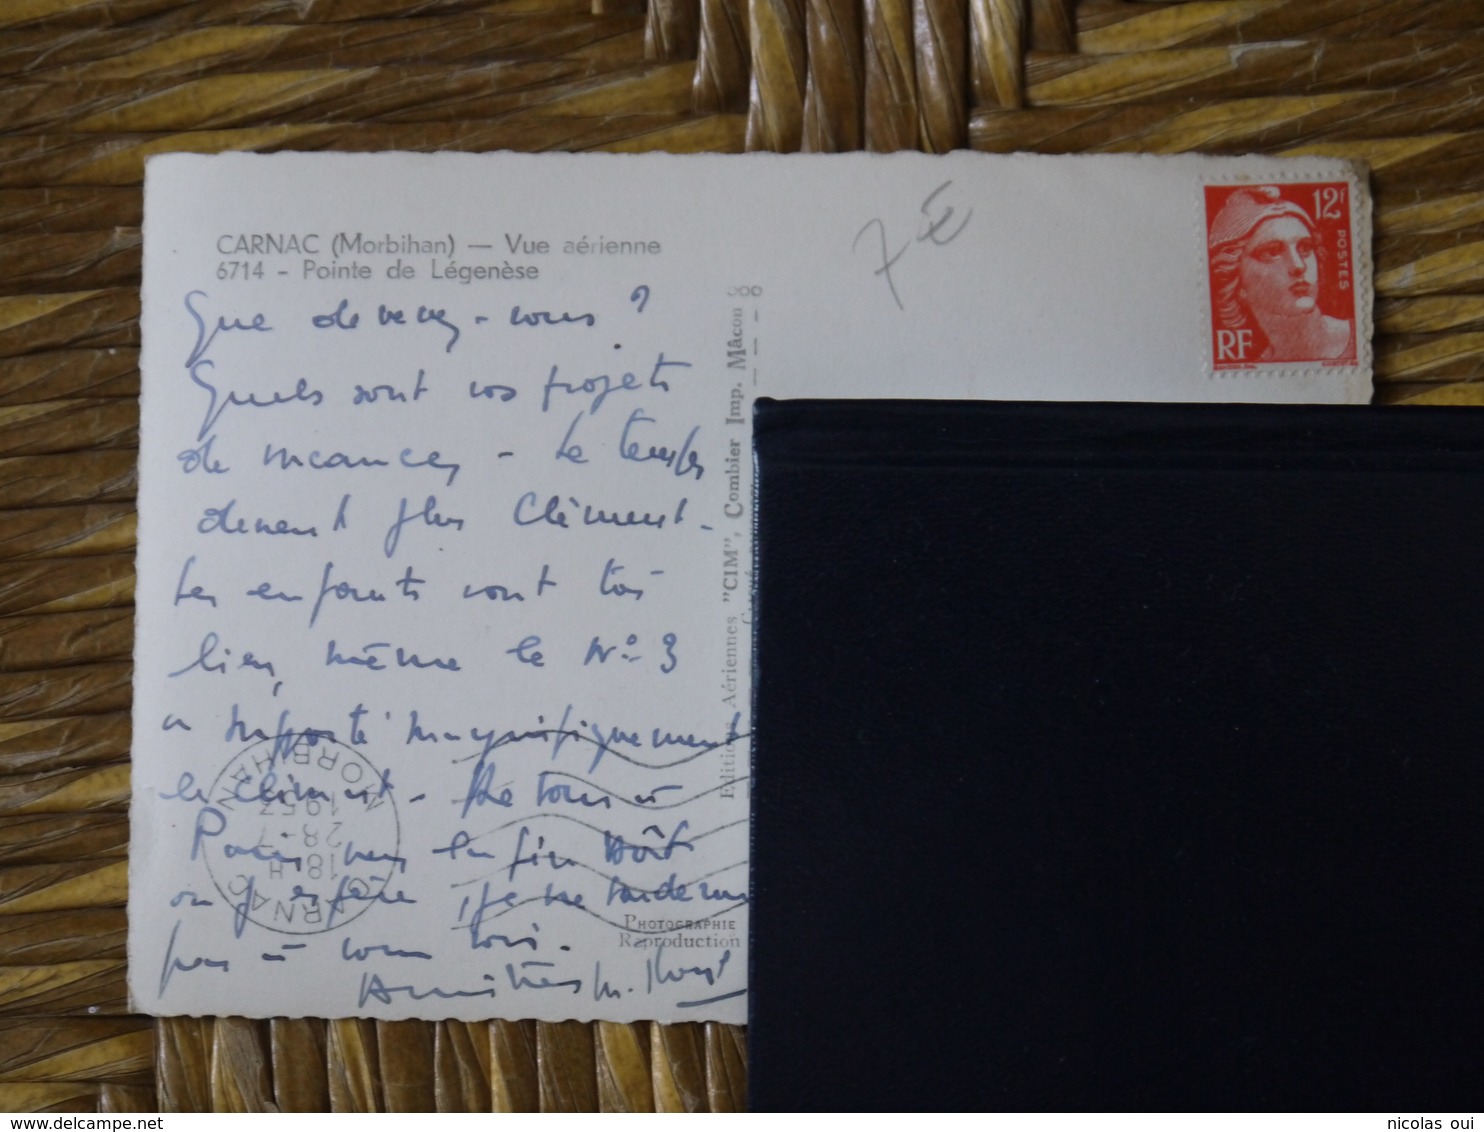 CARNAC (Morbihan) — Vue aérienne
6714 - Pointe de Légenèse
Que devenez-vous ?
Quels sont vos projets
de vacances - Le temps
devient plus Clément -
Les enfants vont très
bien, même le N° 3
a supporté magnifiquement
le climat - Retour à
Paris vers la fin Août
où j'espère, je ne tarderai
pas à vous voir.
Amitiés M.
7 €
12F
POSTES
RF
Editions Aériennes "CIM", Combier Imp. Mâcon
PHOTOGRAPHIE
Reproduction
CARNAC
18 H
28-7
1953
MORBIHAN
nicolas oui